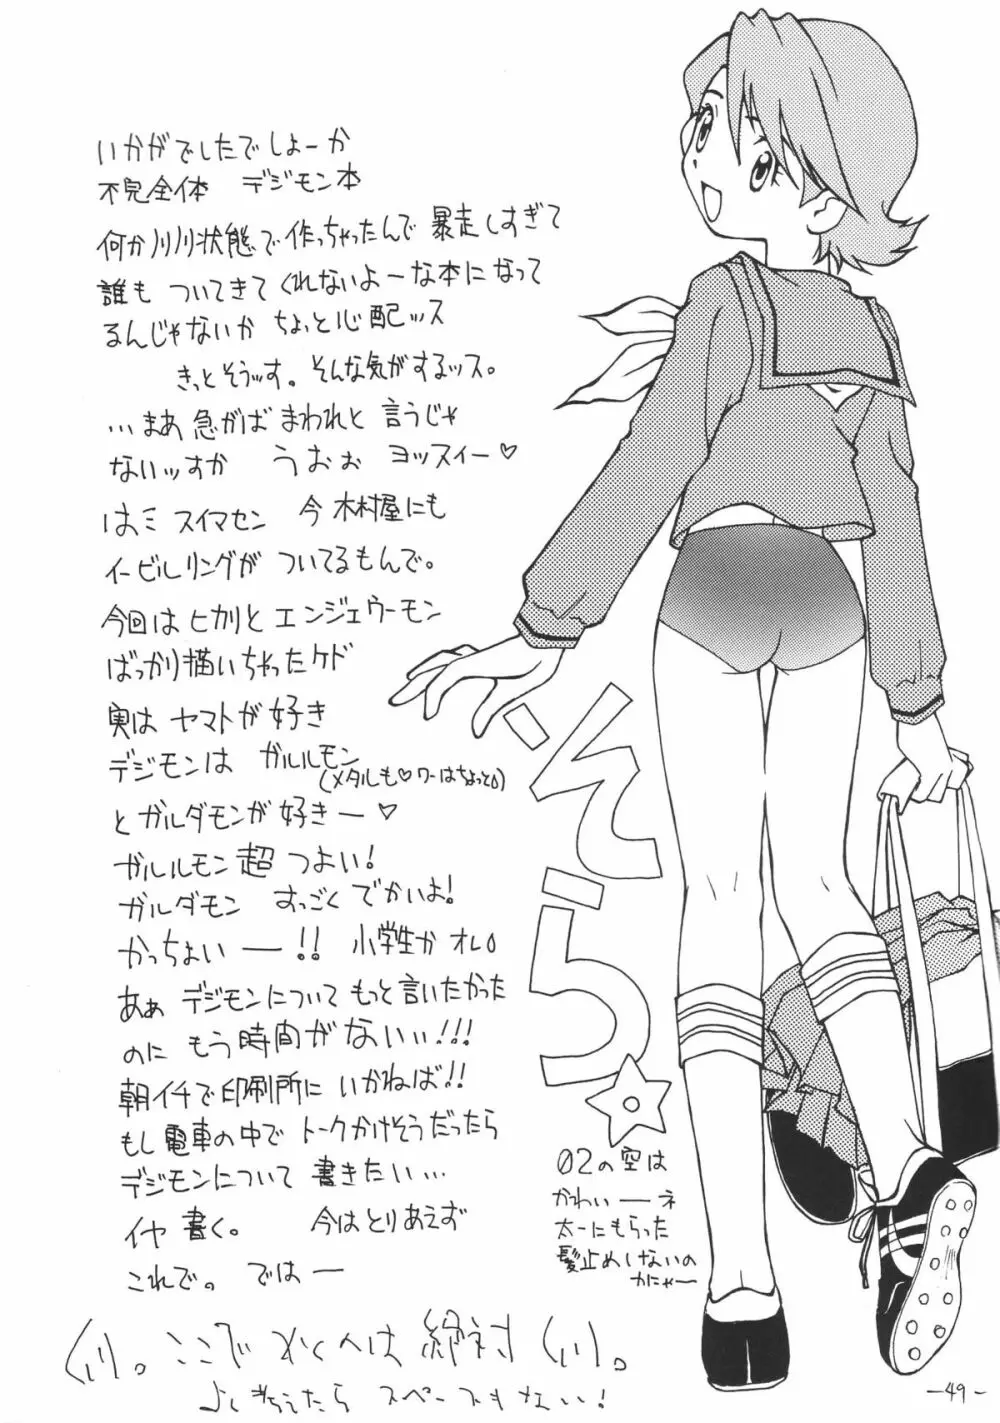 いかがでしたでしょーか
不完全体 デジモン本
何か川川状態で作っちゃったんで 暴走しすぎて
誰も ついてきて くれないよーな本になって
るんじゃないか ちょっと心配ッス
きっとそうッす。そんな気がするッス。
…まあ 急がば まわれと 言うじゃ
ないッすか うおぉ ヨッスィー♡
はミ スイマセン 今 木村屋にも
イービルリングが ついてるもんで。
今回は ヒカリと エンジェウーモン
ばっかり描いちゃったケド
実は ヤマトが 好き
デジモンは ガルルモン
(メタルも♡ワーはちょっと。)
と ガルダモンが 好きー♡
ガルルモン 超 つよい!
ガルダモン すっごく でかいよ!
かっちょいー!! 小学生か オレ。
あぁ デジモンについて もっと言いたかった
のに もう 時間が ないぃぃ!!!
朝イチで印刷所に いかねば!!
もし 電車の中で トークかけそうだったら
デジモンについて 書きたい…
イヤ 書く。 今はとりあえず
これで。 では ー
そら☆
02の空は
かわいーネ
太一にもらった
髪止めしないの
かにゃー
スペースもない!
-49-